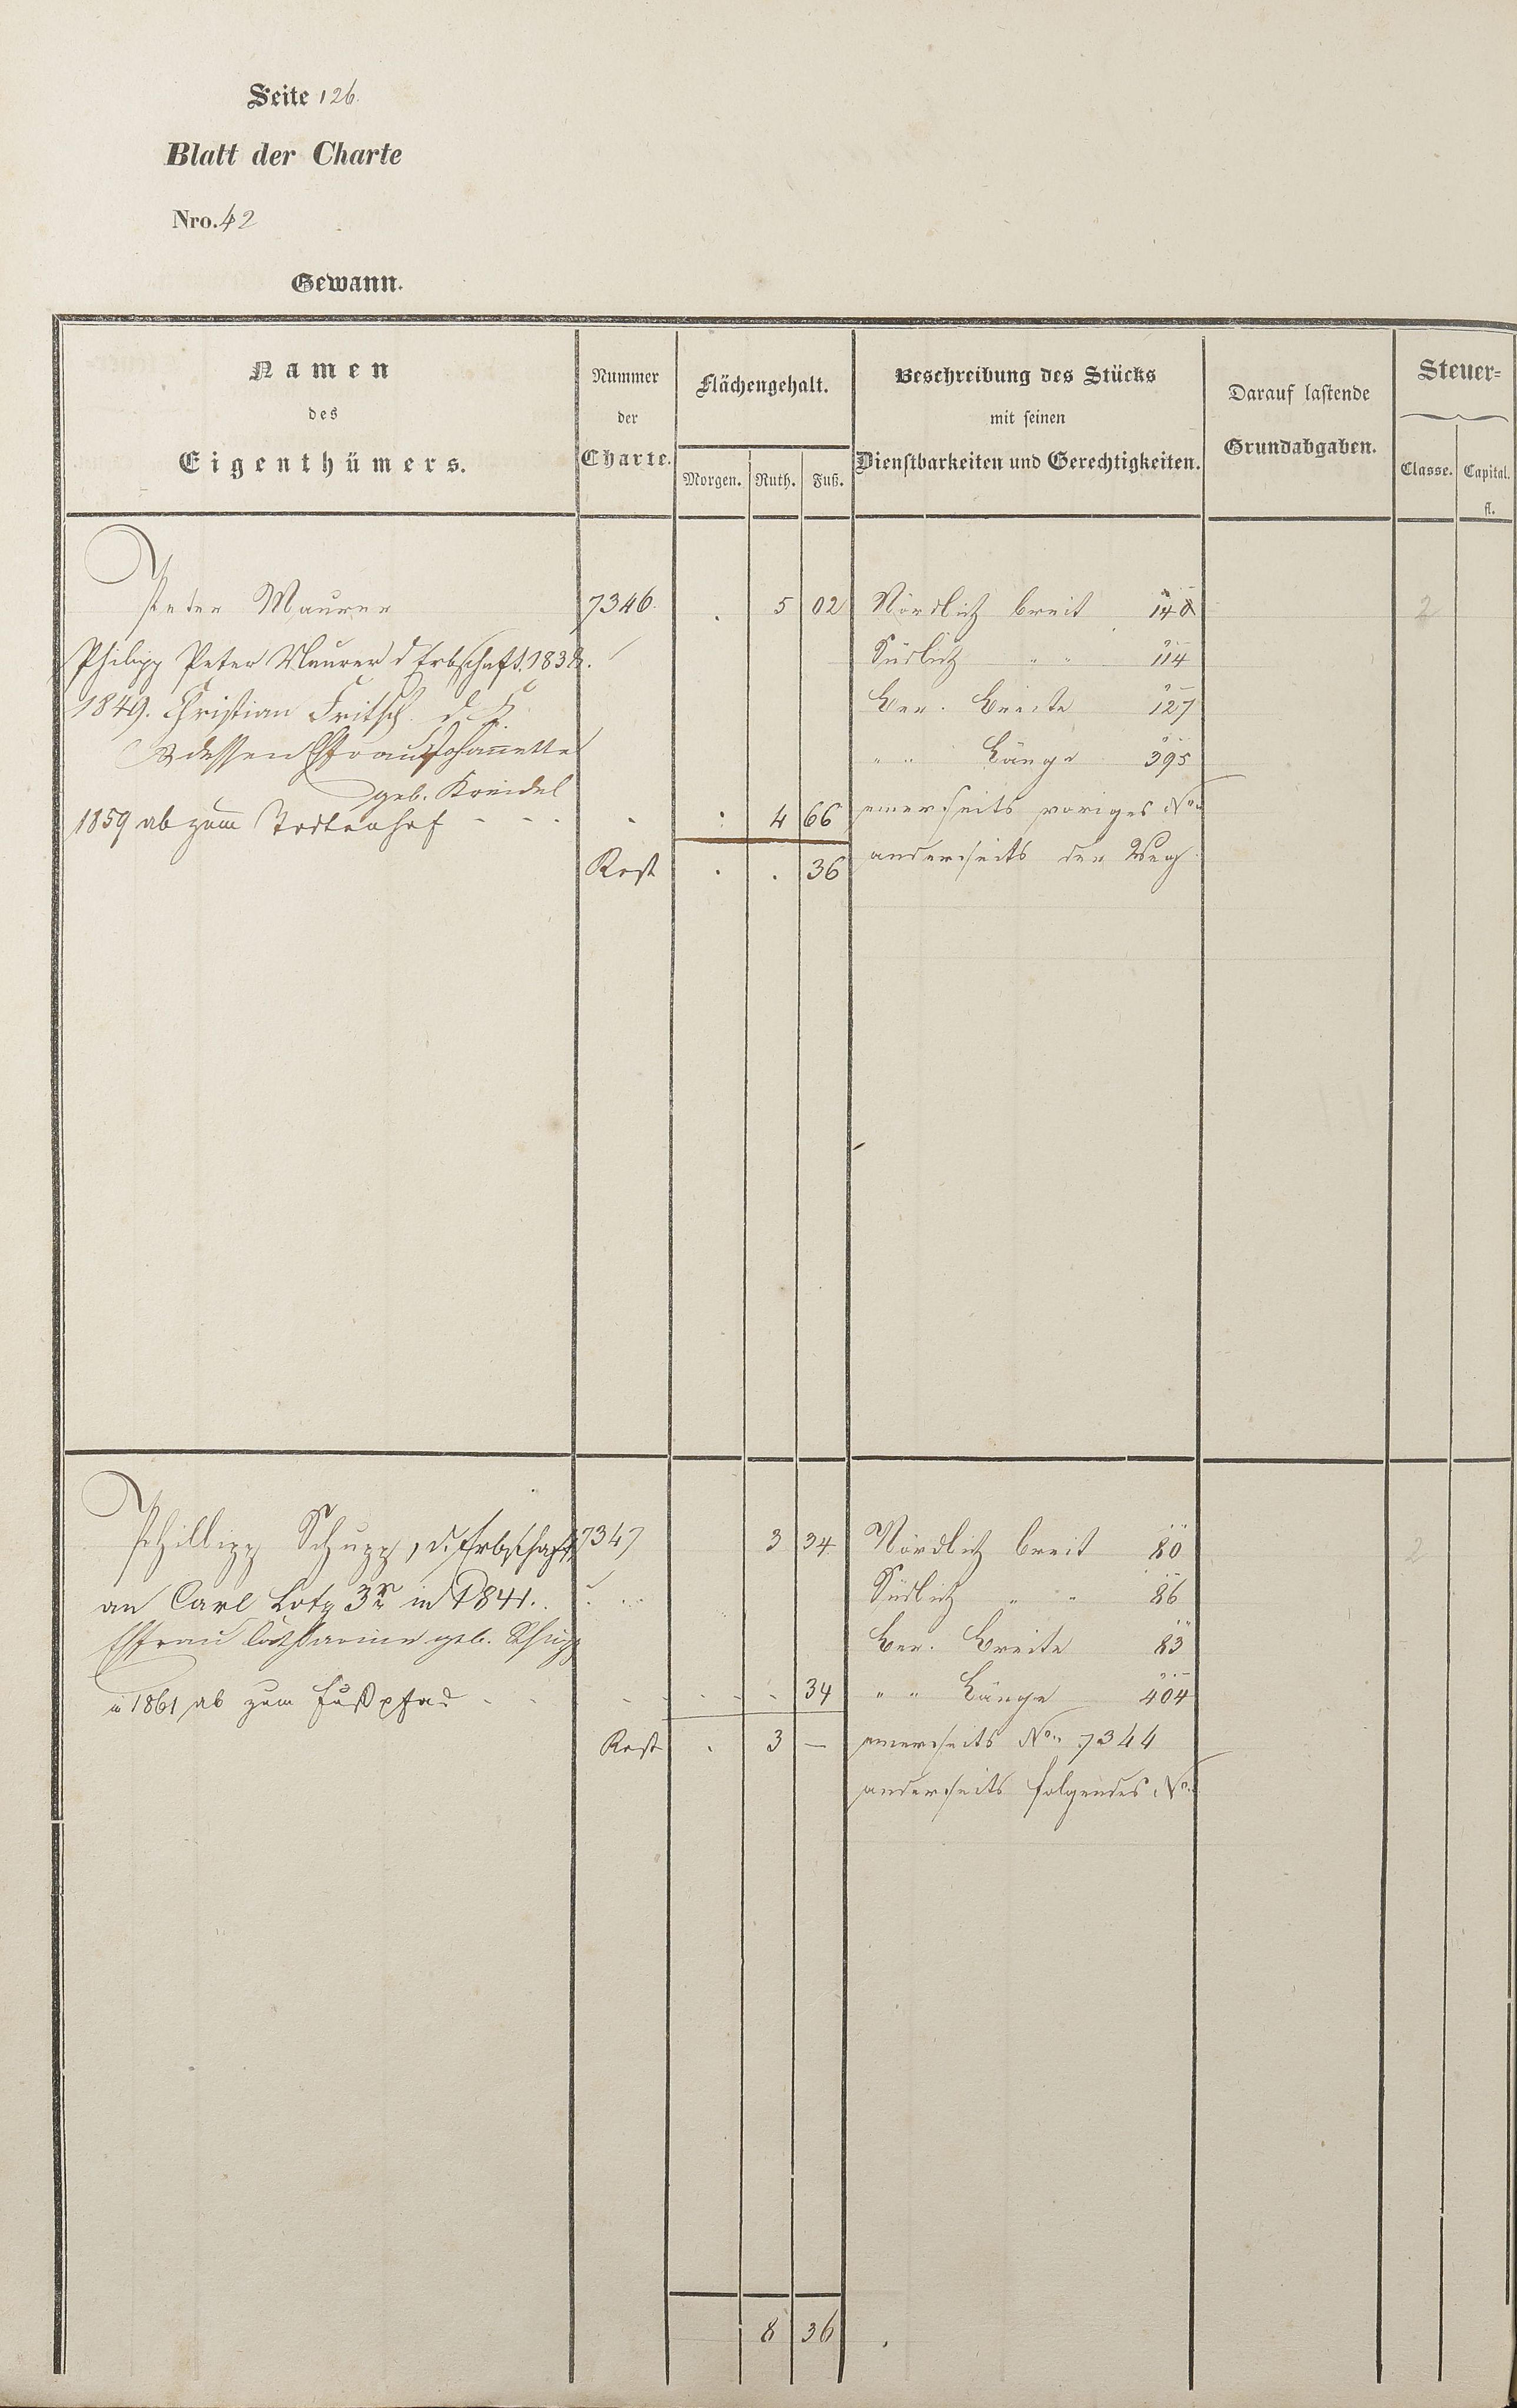 Seite 126.
Blatt der Charte
Nro. 42
Gewann.
Namen
des
Eigenthümers.
Nummer
der
Charte.
Flächengehalt.
Morgen. Ruth. Fuß.
Beschreibung des Stücks
mit seinen
Dienstbarkeiten und Gerechtigkeiten.
Darauf lastende
Grundabgaben.
Steuer=
Classe. Capital.
fl.
Peter Maurer 7346. . 5 02 Nördlich breit 140 2
Philipp Peter Maurer d Erbschaft. 1838. Südlich " " 114
1849. Christian Fritsch d. K. Ber. Breite 127
& dessen Ehefrau Johannette " " Länge 395
geb. Kreidel
1859 ab zum Todtenhof - - - . . 4 66 einerseits voriges No.
Rest . . 36 anderseits der Weg
Phillipp Schupp, d. Erbschaft 7347 3 34 Nördlich breit 80 2
an Carl Lotz 3r in 1841. Südlich " " 86
Ehfrau Catharine geb. Schupp Ber. Breite 83
i 1861 ab zum Fußpfad - - - - - - 34 " " Länge 404
Rest . 3 — einerseits No. 7344
anderseits folgendes No.
8 36